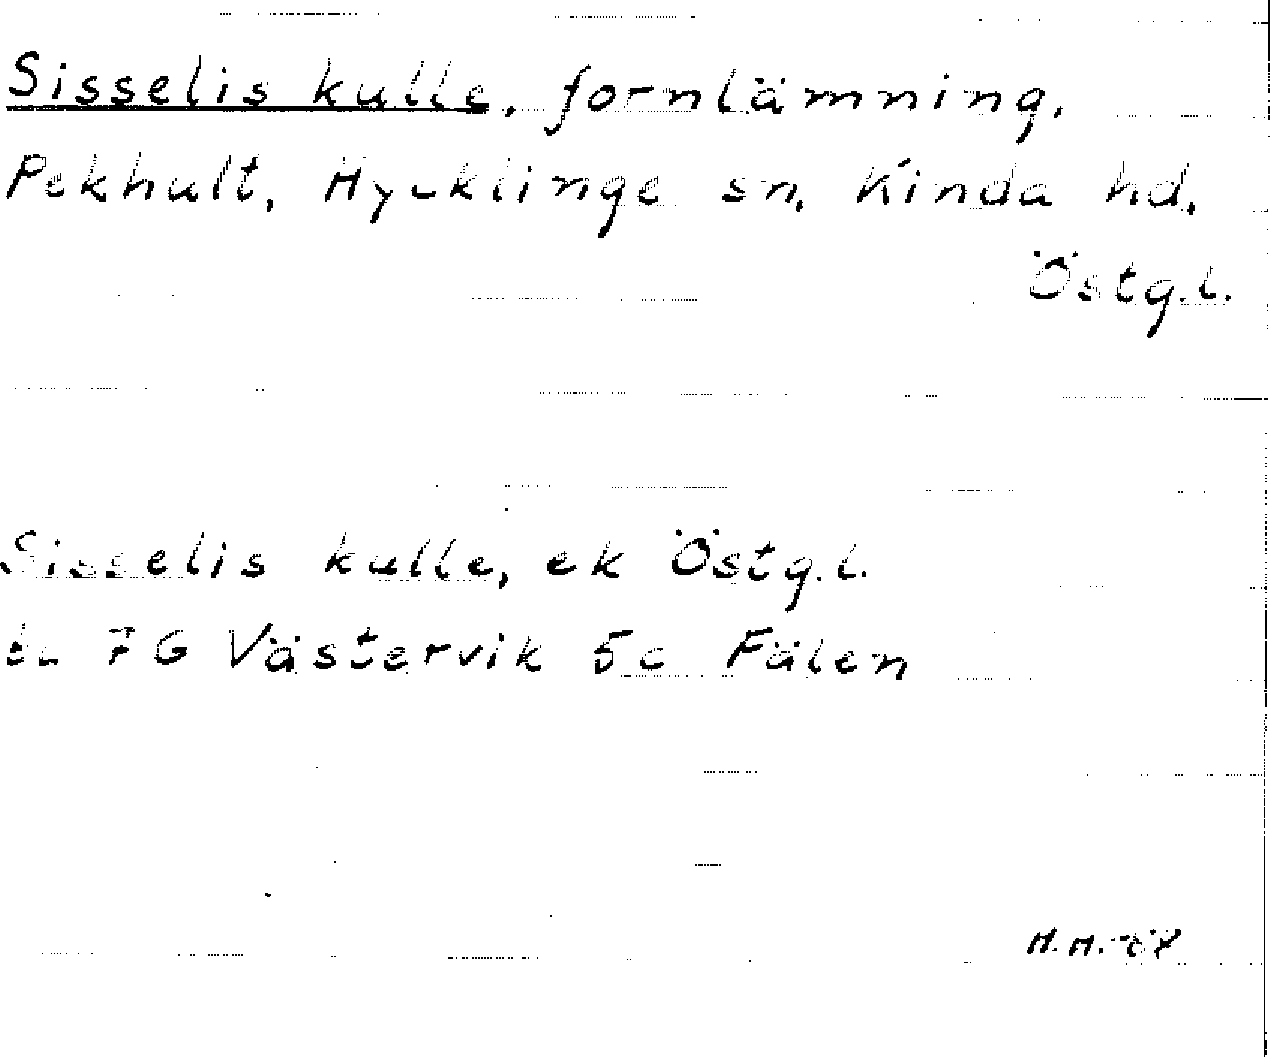 Sisselis kulle, fornlämning,
Pekhult, Hycklinge sn, Kinda hd,
Östg.l.
Sisselis kulle, ek Östg.l.
bl 7G Västervik 5c Fälen
H.H.